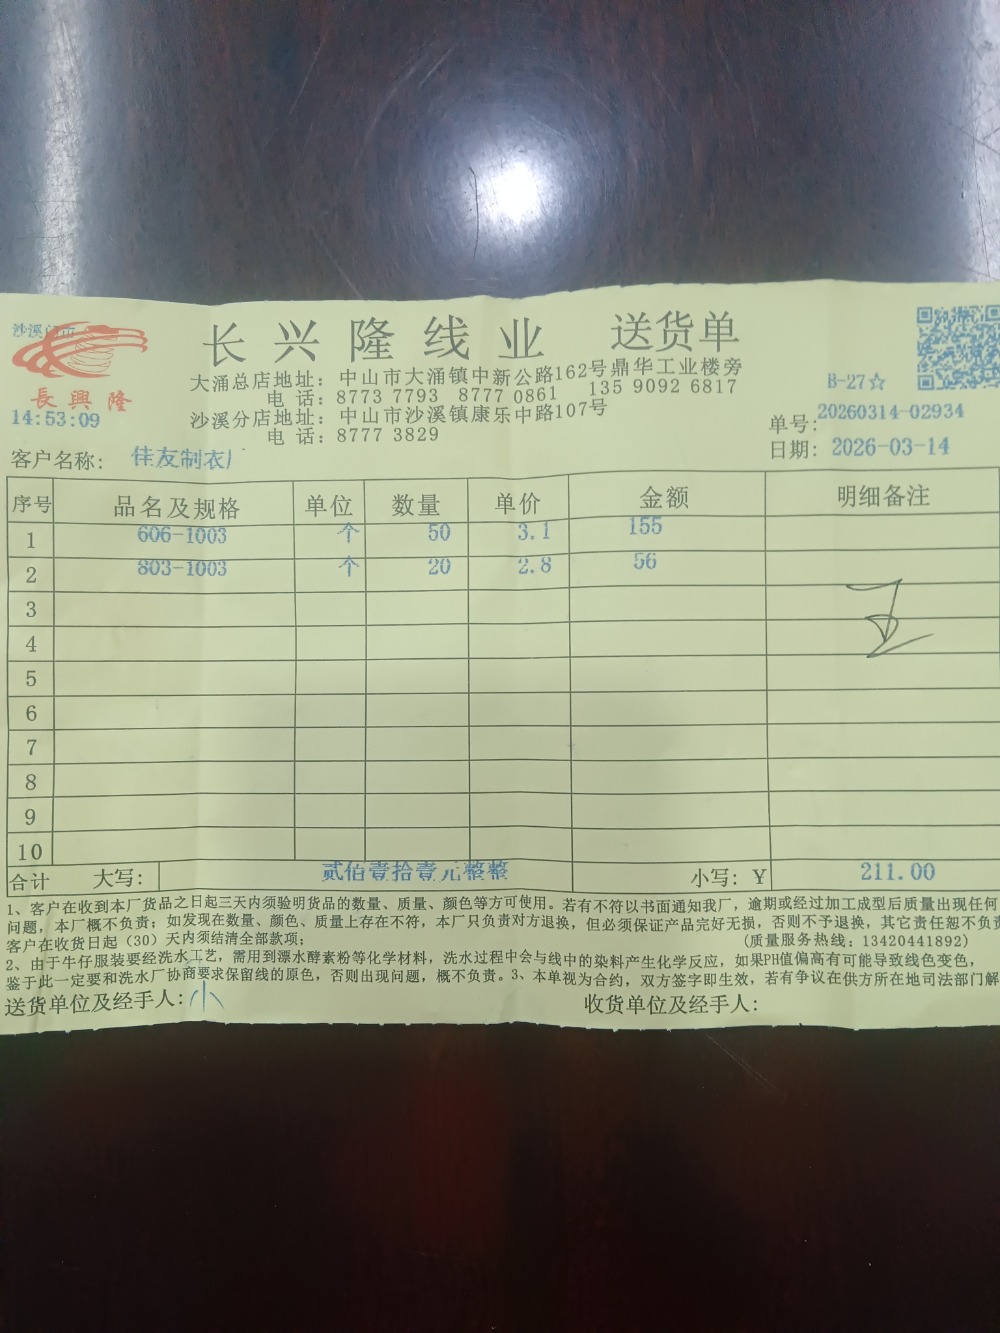 沙溪门市
長興隆
14:53:09
长兴隆线业 送货单
大涌总店地址：中山市大涌镇中新公路162号鼎华工业楼旁
电 话：8773 7793 8777 0861 135 9092 6817
沙溪分店地址：中山市沙溪镇康乐中路107号
电 话：8777 3829
B-27☆
单号：20260314-02934
客户名称： 佳友制衣厂
日期：2026-03-14
序号 品名及规格 单位 数量 单价 金额 明细备注
1 606-1003 个 50 3.1 155
2 803-1003 个 20 2.8 56
3
4
5
6
7
8
9
10
合计 大写： 贰佰壹拾壹元整整 小写：Y 211.00
1、客户在收到本厂货品之日起三天内须验明货品的数量、质量、颜色等方可使用。若有不符以书面通知我厂，逾期或经过加工成型后质量出现任何
问题，本厂概不负责；如发现在数量、颜色、质量上存在不符，本厂只负责对方退换，但必须保证产品完好无损，否则不予退换，其它责任恕不负责
客户在收货日起（30）天内须结清全部款项； （质量服务热线：13420441892）
2、由于牛仔服装要经洗水工艺，需用到漂水酵素粉等化学材料，洗水过程中会与线中的染料产生化学反应，如果PH值偏高有可能导致线色变色，
鉴于此一定要和洗水厂协商要求保留线的原色，否则出现问题，概不负责。3、本单视为合约，双方签字即生效，若有争议在供方所在地司法部门解
送货单位及经手人：小 收货单位及经手人：